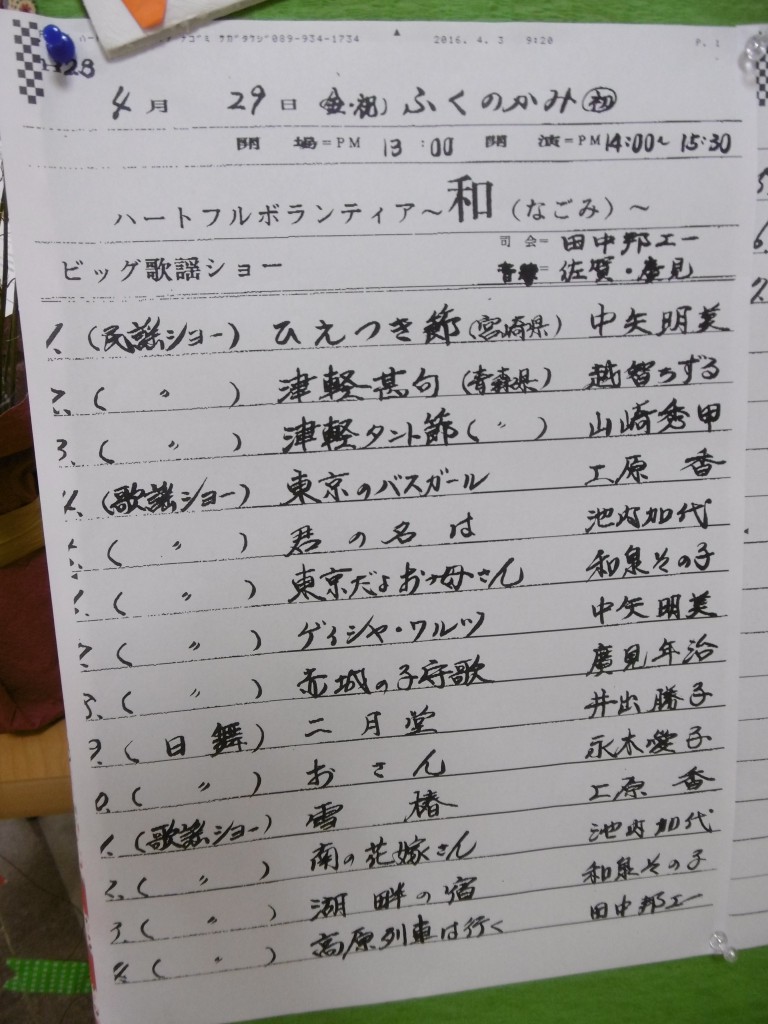 089-934-1734 ▲ 2016. 4. 3 9:20 P. 1
H28
4月 29日(金・祝)ふくのかみ(初)
開 場=PM 13:00 開 演=PM 14:00~ 15:30
ハートフルボランティア~和(なごみ)~
ビッグ歌謡ショー
司会= 田中邦工一
音響= 佐賀・廣見
1. (民謡ショー) ひえつき節(宮崎県) 中矢明美
2. ( 〃 ) 津軽甚句(青森県) 越智ちずる
3. ( 〃 ) 津軽タント節( 〃 ) 山崎秀甲
4. (歌謡ショー) 東京のバスガール 工原 香
( 〃 ) 君の名は 池内加代
( 〃 ) 東京だよおっ母さん 和泉その子
( 〃 ) ゲイシャ・ワルツ 中矢明美
( 〃 ) 赤城の子守歌 廣見年治
9. (日舞) 二月堂 井出勝子
0. ( 〃 ) おさん 永木愛子
1. (歌謡ショー) 雪椿 工原 香
2. ( 〃 ) 南の花嫁さん 池内加代
3. ( 〃 ) 湖畔の宿 和泉その子
4. ( 〃 ) 高原列車は行く 田中邦工一